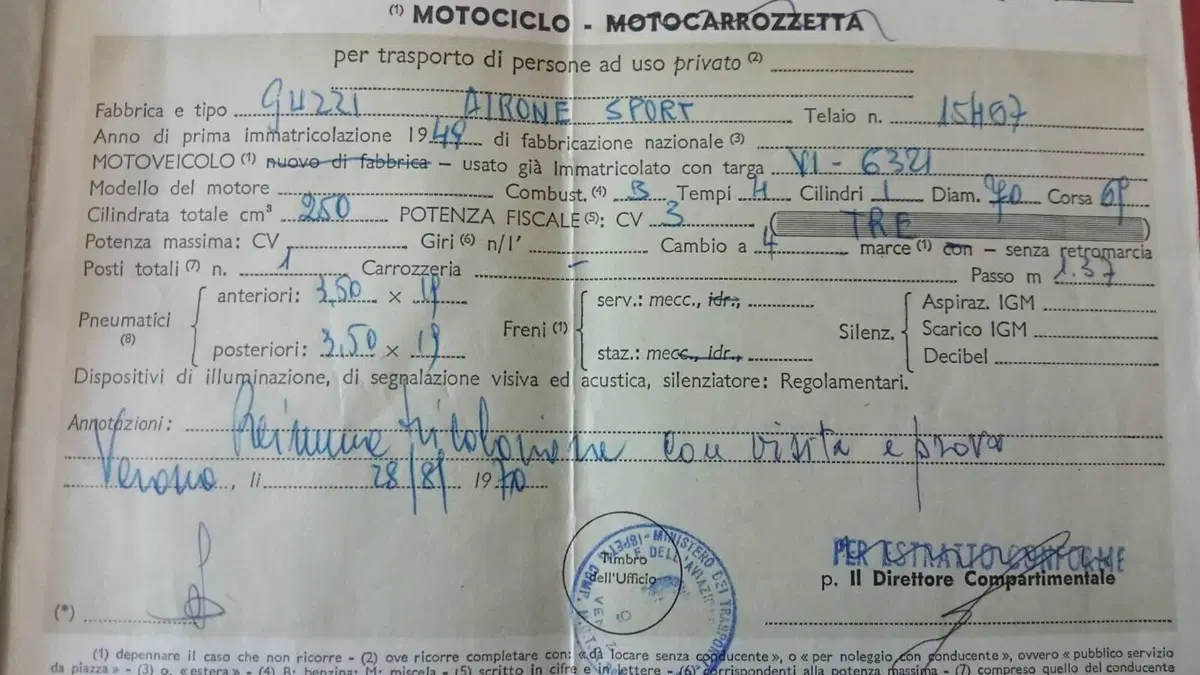 (1) MOTOCICLO - MOTOCARROZZETTA
per trasporto di persone ad uso privato (2)
Fabbrica e tipo GUZZI AIRONE SPORT Telaio n. 15407
Anno di prima immatricolazione 1949 di fabbricazione nazionale (3)
MOTOVEICOLO (1) nuovo di fabbrica - usato già Immatricolato con targa VI - 6321
Modello del motore Combust. (4) B Tempi 4 Cilindri 1 Diam. 70 Corsa 65
Cilindrata totale cm³ 250 POTENZA FISCALE (5): CV 3 TRE
Potenza massima: CV Giri (6) n/1' Cambio a 4 marce (1) con - senza retromarcia
Posti totali (7) n. 1 Carrozzeria - Passo m 1.37
Pneumatici (8)
anteriori: 3,50 × 19
posteriori: 3,50 × 19
Freni (1)
serv.: mecc., idr.,
staz.: mecc., idr.,
Silenz.
Aspiraz. IGM
Scarico IGM
Decibel
Dispositivi di illuminazione, di segnalazione visiva ed acustica, silenziatore: Regolamentari.
Annotazioni: con visita e prova
Verona, li 28/8/ 1970
Timbro
dell'Ufficio
MINISTERO DEI TRASPORTI
PER ESTRATTO CONFORME
p. Il Direttore Compartimentale
(*)
(1) depennare il caso che non ricorre - (2) ove ricorre completare con: «da locare senza conducente», o «per noleggio con conducente», ovvero «pubblico servizio
da piazza» - (3) o. «estera» - (4) B: benzina; M: miscela - (5) scritto in cifre e in lettere - (6) corrispondenti alla potenza massima - (7) compreso quello del conducente